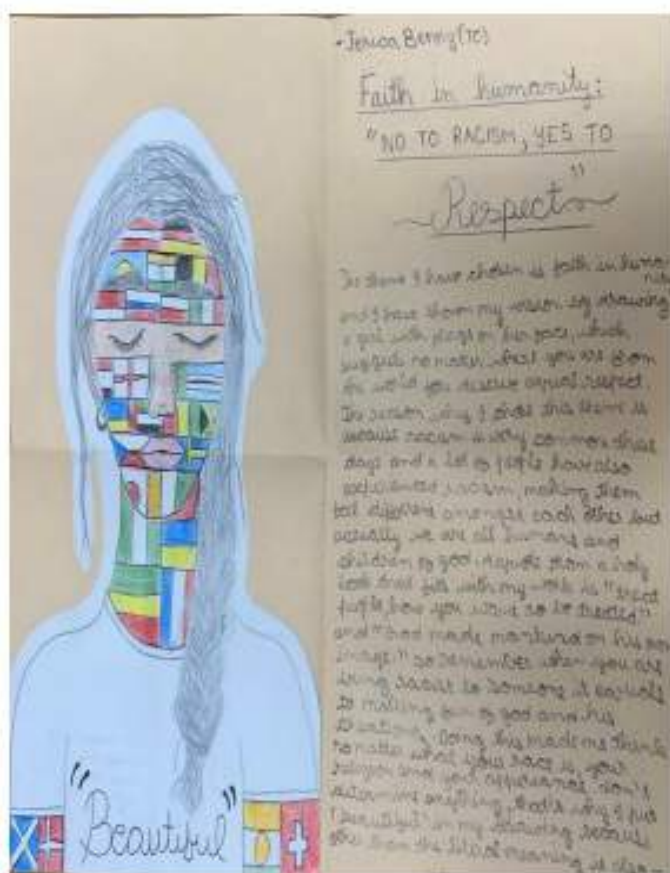 - Jerica Benny (TC)
Faith in humanity:
"NO TO RACISM, YES TO
Respect"
The theme I have chosen is faith in humanity
and I have shown my reason by drawing
a girl with flags on her face, which
suggest no matter where you are from
the world you deserve equal respect.
The reason why I chose this theme is
because racism is very common these
days and a lot of people have also
experienced racism, making them
feel different amongst each other but
actually we are all humans and
children of god. A quote from a holy
book that fits with my work is "treat
people how you want to be treated"
and "God made mankind on his own
image." so remember when you are
being racist to someone it equals
to making fun of god and his
creations. Doing this made me think
no matter what your race is, your
religion and your appearance don't
determine anything, that's why I put
"beautiful" in my drawing because
the literal meaning is
"Beautiful"